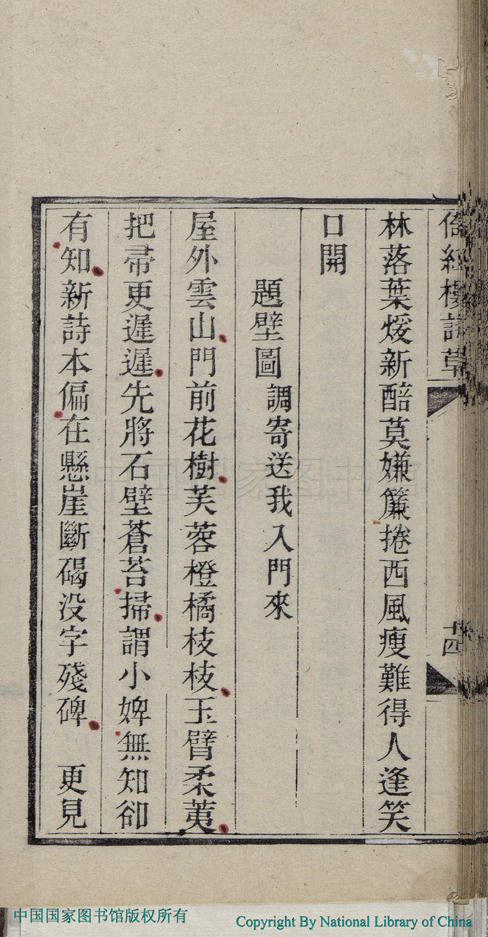 倚紅樓詩草
十四
林落葉煖新醅莫嫌簾捲西風瘦難得人逢笑
口開
題壁圖調寄送我入門來
屋外雲山門前花樹芙蓉橙橘枝枝玉臂柔荑
把帚更遲遲先將石壁蒼苔掃謂小婢無知卻
有知新詩本偏在懸崖斷碣没字殘碑 更見
中国国家图书馆版权所有
Copyright By National Library of China